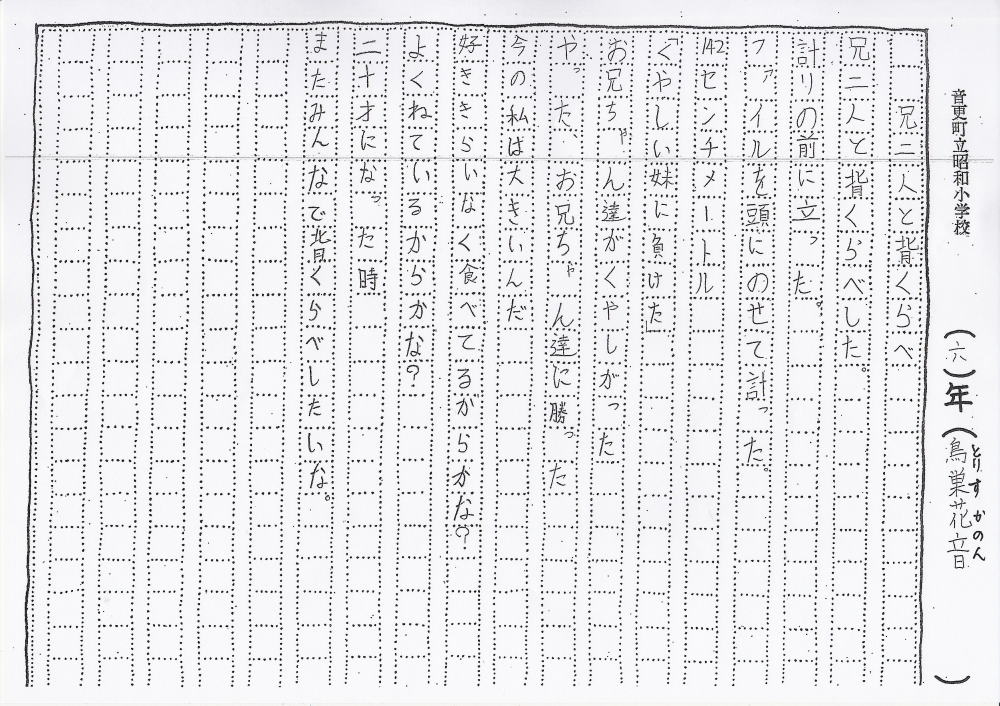 音更町立昭和小学校
(六)年(鳥巣花音)
とりす かのん
兄二人と背くらべ
兄二人と背くらべした。
計りの前に立った。
ファイルを頭にのせて計った。
142センチメートル
「くやしい妹に負けた」
お兄ちゃん達がくやしがった
やった、お兄ちゃん達に勝った
今の私は大きいんだ
好ききらいなく食べてるからかな?
よくねているからかな?
二十才になった時
またみんなで背くらべしたいな。